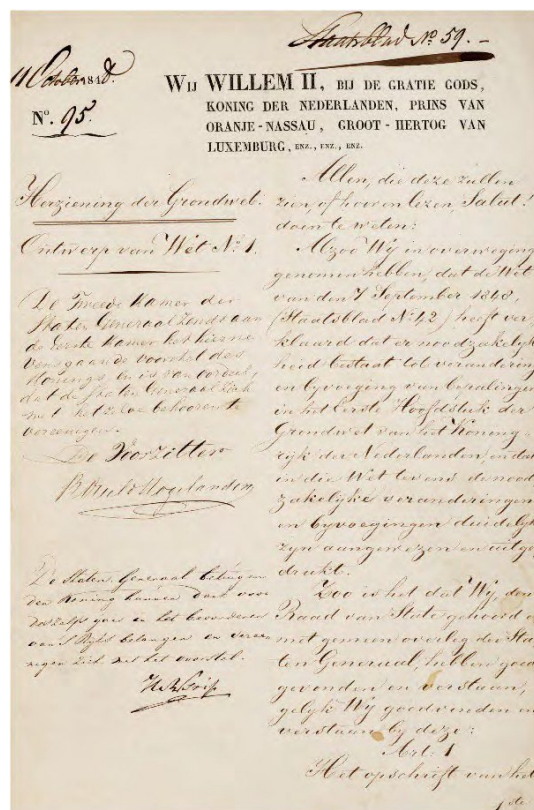 Staatsblad No 59. -
11 October 1848.
No. 95.
WIJ WILLEM II, BIJ DE GRATIE GODS,
KONING DER NEDERLANDEN, PRINS VAN
ORANJE-NASSAU, GROOT-HERTOG VAN
LUXEMBURG, ENZ., ENZ., ENZ.
Herziening der Grondwet.
Ontwerp van Wet No 1.
De Tweede Kamer der
Staten Generaal zendt aan
de Eerste Kamer het hierne
vensgaande voorstel des
Konings, en is van oordeel,
dat de Staten Generaal zich
met het zelve behooren te
vereenigen.
De Voorzitter
De Staten Generaal betuigen
den Koning hunnen dank voor
en het bevorderen
van 's Rijks belangen en veree
nigen zich met het voorstel.
Allen, die deze zullen
zien, of hooren lezen, Salut!
doen te weten:
Alzoo Wij in overweging
genomen hebben, dat de Wet
van den 7 September 1848,
(Staatsblad No 42) heeft ver
klaard dat er noodzakelyk
heid bestaat tot verandering
en byvoeging van bepalingen
in het Eerste Hoofdstuk der
Grondwet van het Koning-
ryk der Nederlanden en dat
in die Wet tevens de nood
zakelyke veranderingen
en byvoegingen duidelyk
zyn aangewezen en uitge
drukt.
Zoo is het dat Wij, den
Raad van State gehoord e
met gemeen overleg der Sta
ten Generaal, hebben goed
gevonden en verstaan,
gelyk Wij goedvinden en
verstaan by deze:
Art: 1
Het opschrift van het
1ste